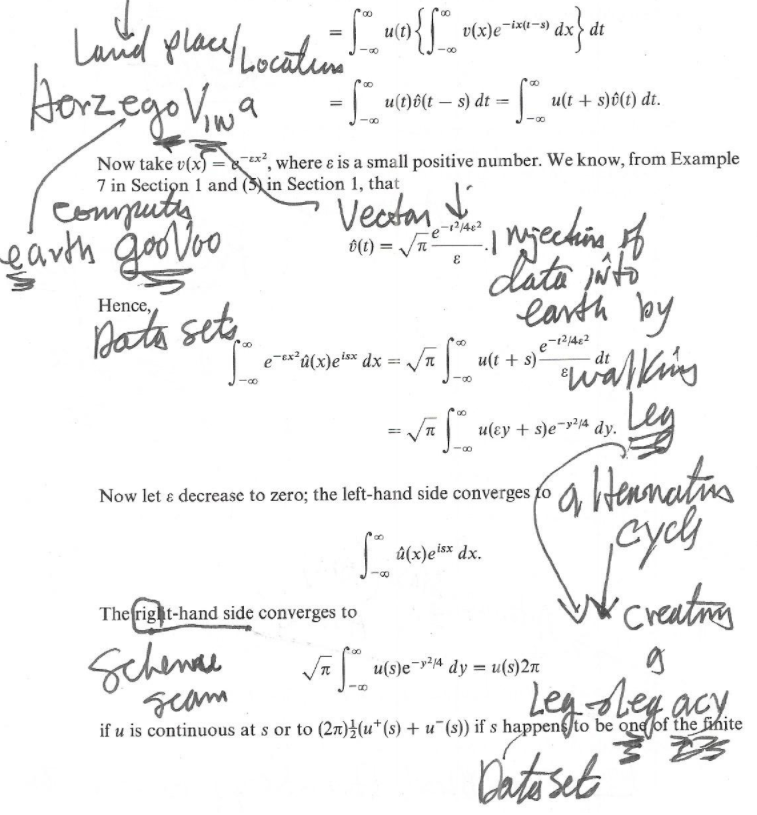 = ∫_{-∞}^{∞} u(t) { ∫_{-∞}^{∞} v(x)e^{-ix(t-s)} dx } dt
Land place/Location
HerzegoVina
= ∫_{-∞}^{∞} u(t)v̂(t − s) dt = ∫_{-∞}^{∞} u(t + s)v̂(t) dt.
Now take v(x) = e^{-εx²}, where ε is a small positive number. We know, from Example
7 in Section 1 and (5) in Section 1, that
computer
earth gooVoo
Vector
v̂(t) = √π e^{-t²/4ε²}/ε.
Injection of
data into
earth by
walking
Leg
Hence,
Data sets
∫_{-∞}^{∞} e^{-εx²}û(x)e^{isx} dx = √π ∫_{-∞}^{∞} u(t + s) e^{-t²/4ε²}/ε dt
= √π ∫_{-∞}^{∞} u(εy + s)e^{-y²/4} dy.
Now let ε decrease to zero; the left-hand side converges to
cycle
∫_{-∞}^{∞} û(x)e^{isx} dx.
The right-hand side converges to
creating
a
Scheme
scam
√π ∫_{-∞}^{∞} u(s)e^{-y²/4} dy = u(s)2π
Leg → Leg acy
if u is continuous at s or to (2π)½(u⁺(s) + u⁻(s)) if s happens to be one of the finite
Data sets